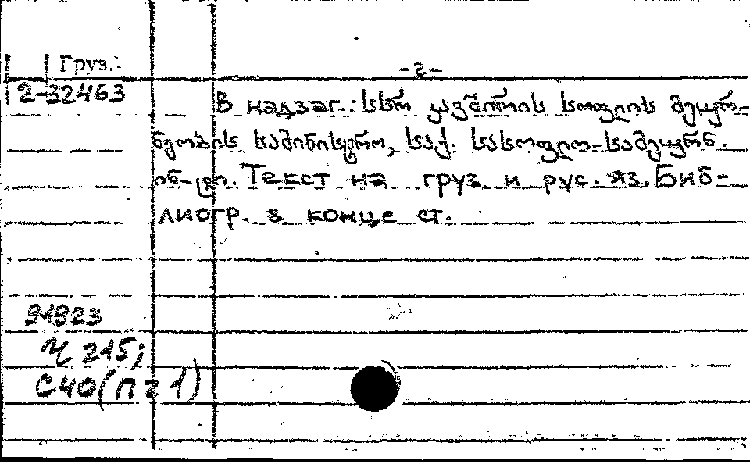 Груз.
-2-
2-32463
В надзаг.: სსრ კავშირის სოფლის მეურ-
ნეობის სამინისტრო, საქ. სასოფლო-სამეურნ.
ინ-ტი. Текст на груз. и рус. яз. Биб-
лиогр. в конце ст.
91823
Ч 215;
С40(П21)